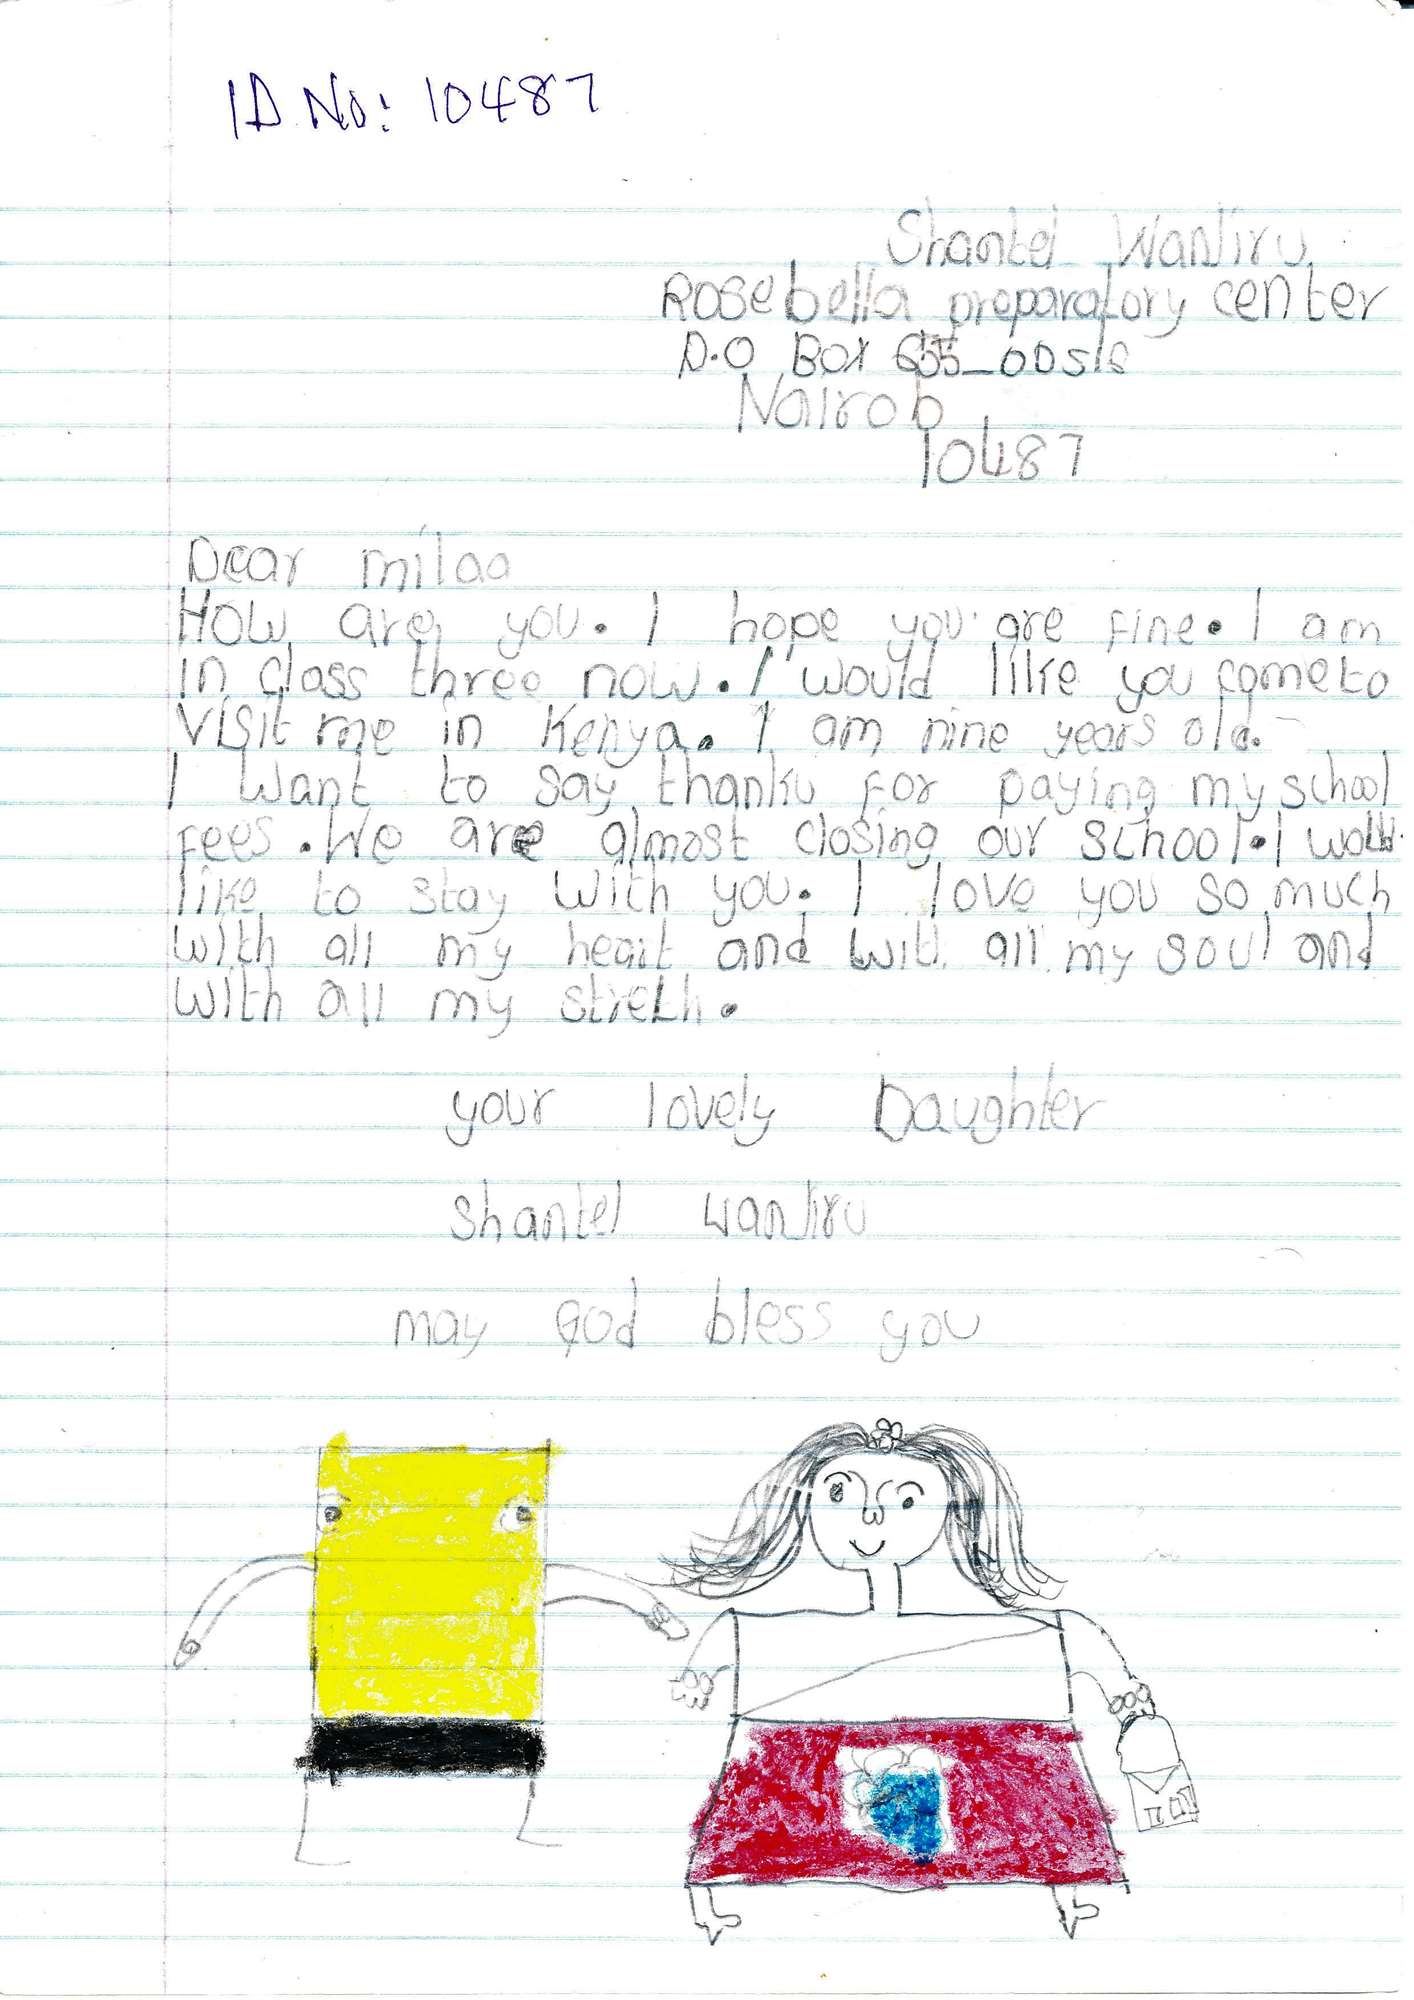 ID No: 10487
Shantel WanJiru
Rosebella preparatory center
P.O Box 655_00518
Nairob
10487
Dear milaa
How are you. I hope you are fine. I am
in class three now. I would like you come to
visit me in Kenya. I am nine years old.
I want to say thanku for paying my school
fees. We are almost closing our school. I would
like to stay with you. I love you so much
with all my heart and with all my soul and
with all my streth.
your lovely Daughter
shantel wanJiru
may God bless you